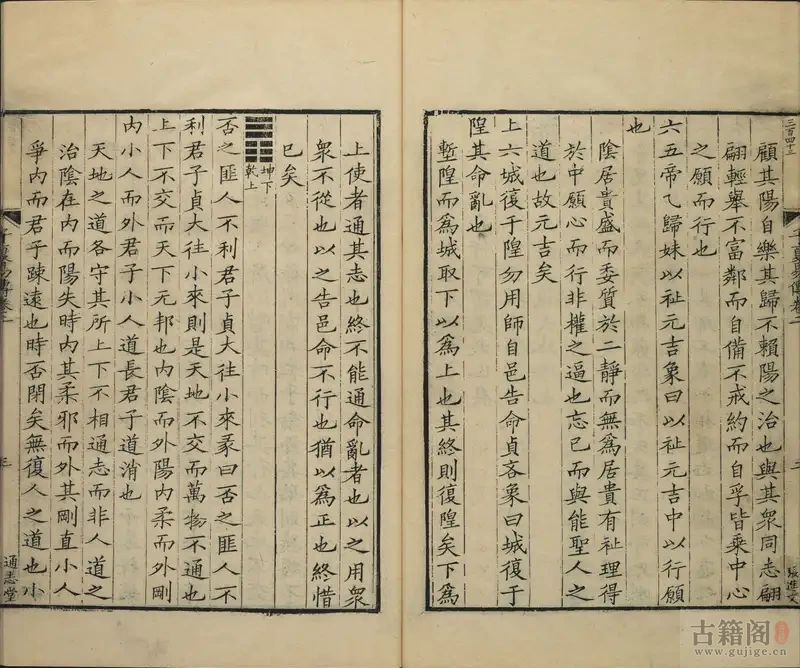 三百四十三
顧其陽自樂其歸不賴陽之治也與其衆同志翩
翩輕舉不富鄰而自備不戒約而自孚皆乘中心
之願而行也
六五帝乙歸妹以祉元吉象曰以祉元吉中以行願
也
陰居貴盛而委質於二靜而無爲居貴有祉理得
於中願心而行非權之逼也忘已而與能聖人之
道也故元吉矣
上六城復于隍勿用師自邑告命貞吝象曰城復于
隍其命亂也
塹隍而爲城取下以爲上也其終則復隍矣下爲
張進文
上使者通其志也終不能通命亂者也以之用衆
衆不從也以之告邑命不行也猶以爲正也終惜
已矣
坤下
乾上
否之匪人不利君子貞大往小來彖曰否之匪人不
利君子貞大往小來則是天地不交而萬物不通也
上下不交而天下无邦也内陰而外陽内柔而外剛
内小人而外君子小人道長君子道消也
天地之道各守其所上下不相通志而非人道之
治陰在内而陽失時内其柔邪而外其剛直小人
爭内而君子踈遠也時否閉矣無復人之道也小
子夏易傳卷二
三
通志堂
古籍阁
www.gujige.cn